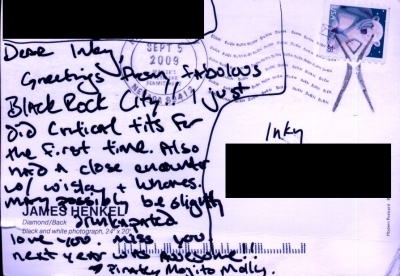 SEPT 5
2009
Dear Inky,
Greetings from fabulous
Black Rock City. I just
did Critical tits for
the first time. Also
had a close encounter
w/ whiskey + whores.
may possibly be slightly
JAMES HENKEL
Diamond/Back
black and white photograph, 24" x 20"
love you. miss you
next year
Pirate Mojito Molly.
Inky